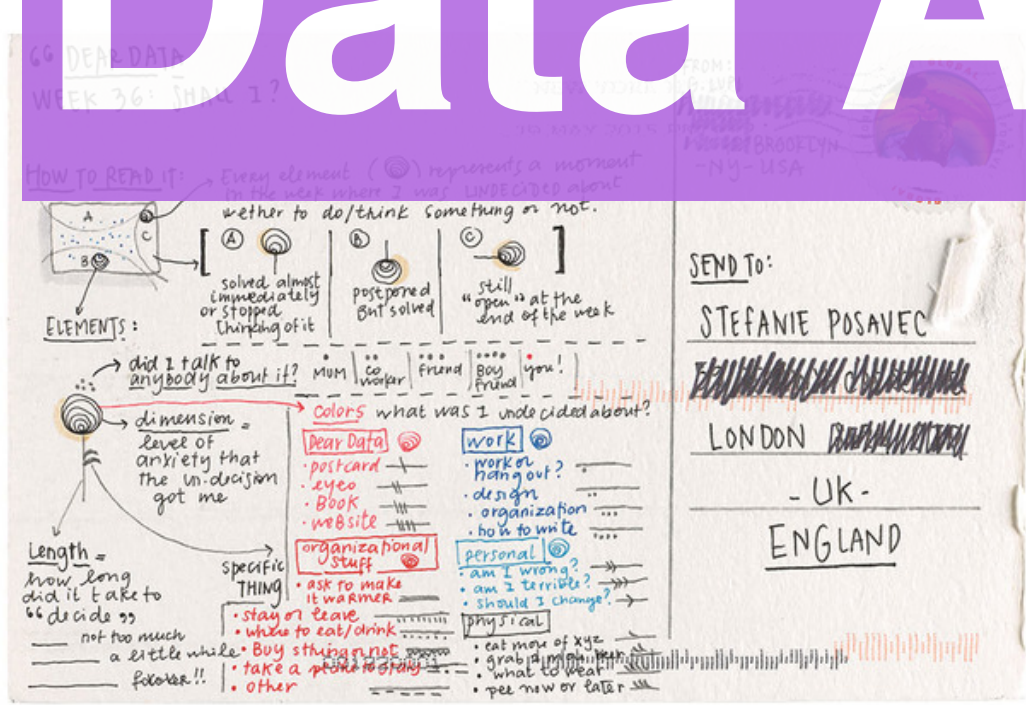 Data A
" DEAR DATA
WEEK 36: SHALL I?
FROM:
G. LUPI
BROOKLYN
-NY- USA
HOW TO READ IT:
Every element ( ) represents a moment
in the week where I was UNDECIDED about
wether to do/think something or not.
A
B
C
A
solved almost
immediately
or stopped
thinking of it
B
postponed
But solved
C
still
"open" at the
end of the week
ELEMENTS:
did I talk to
anybody about it?
MUM
co worker
friend
Boy friend
you!
dimension =
level of
anxiety that
the un-decision
got me
Length =
how long
did it take to
"decide"
not too much
a little while
forever!!
specific
THING
colors what was I undecided about?
Dear Data
• postcard
• eyeo
• Book
• website
organizational
stuff
• ask to make
it warmer
• stay or leave
• where to eat/drink
• Buy sthing or not
• take a
• other
work
• work or
hang out?
• design
• organization
• how to write
personal
• am I wrong?
• am I terrible?
• should I change?
physical
• eat more of xyz
• grab a
• what to wear
• pee now or later
SEND TO:
STEFANIE POSAVEC
LONDON
- UK -
ENGLAND